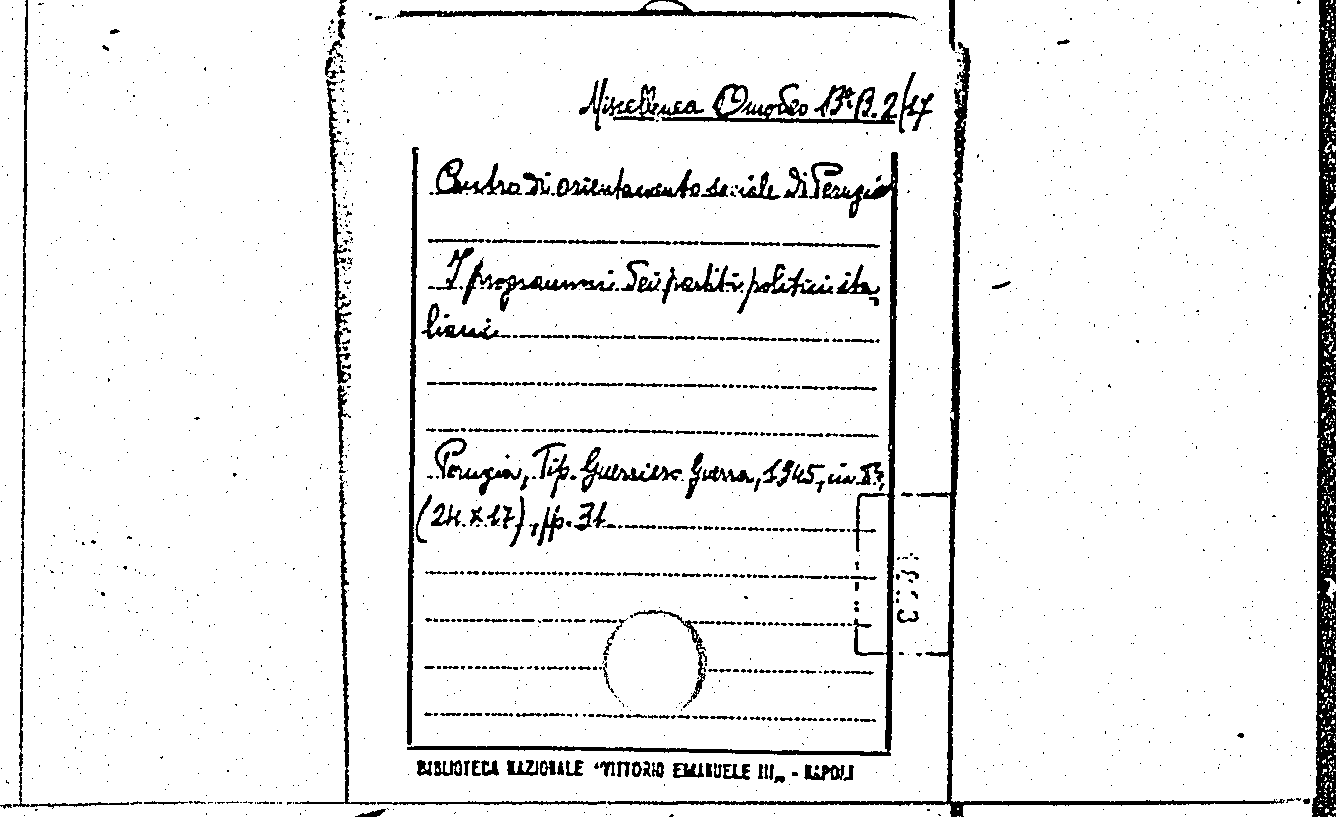 Miscellanea Omodeo Bª B. 2/17
Centro di orientamento sociale di Perugia
I programmi dei partiti politici ita,
liani
Perugia, Tip. Guerriero Guerra, 1945, in 8º,
(24 x 17), pp. 31
BIBLIOTECA NAZIONALE "VITTORIO EMANUELE III„ - NAPOLI